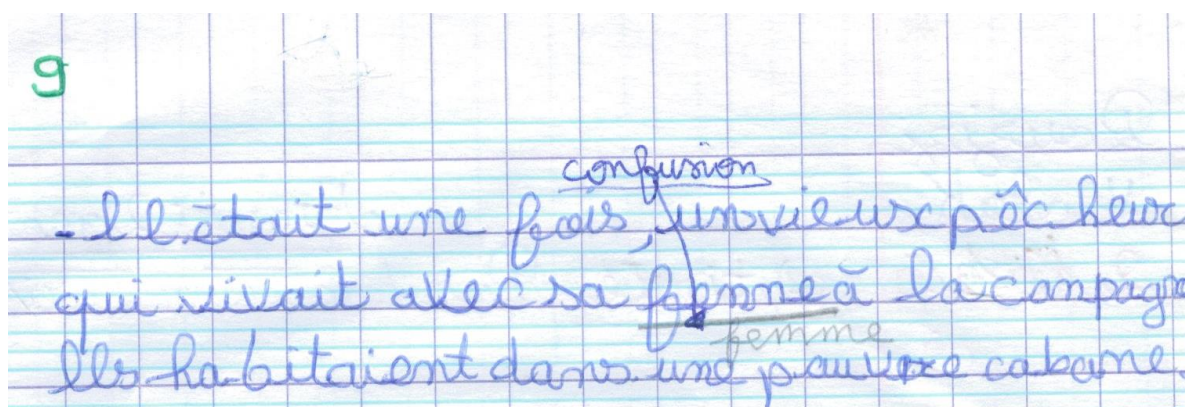 9
confusion
- Il était une fois, un vieux pêcheur
qui vivait avec sa fenme à la canpagn
femme
Ils habitaient dans une pauvre cabane.